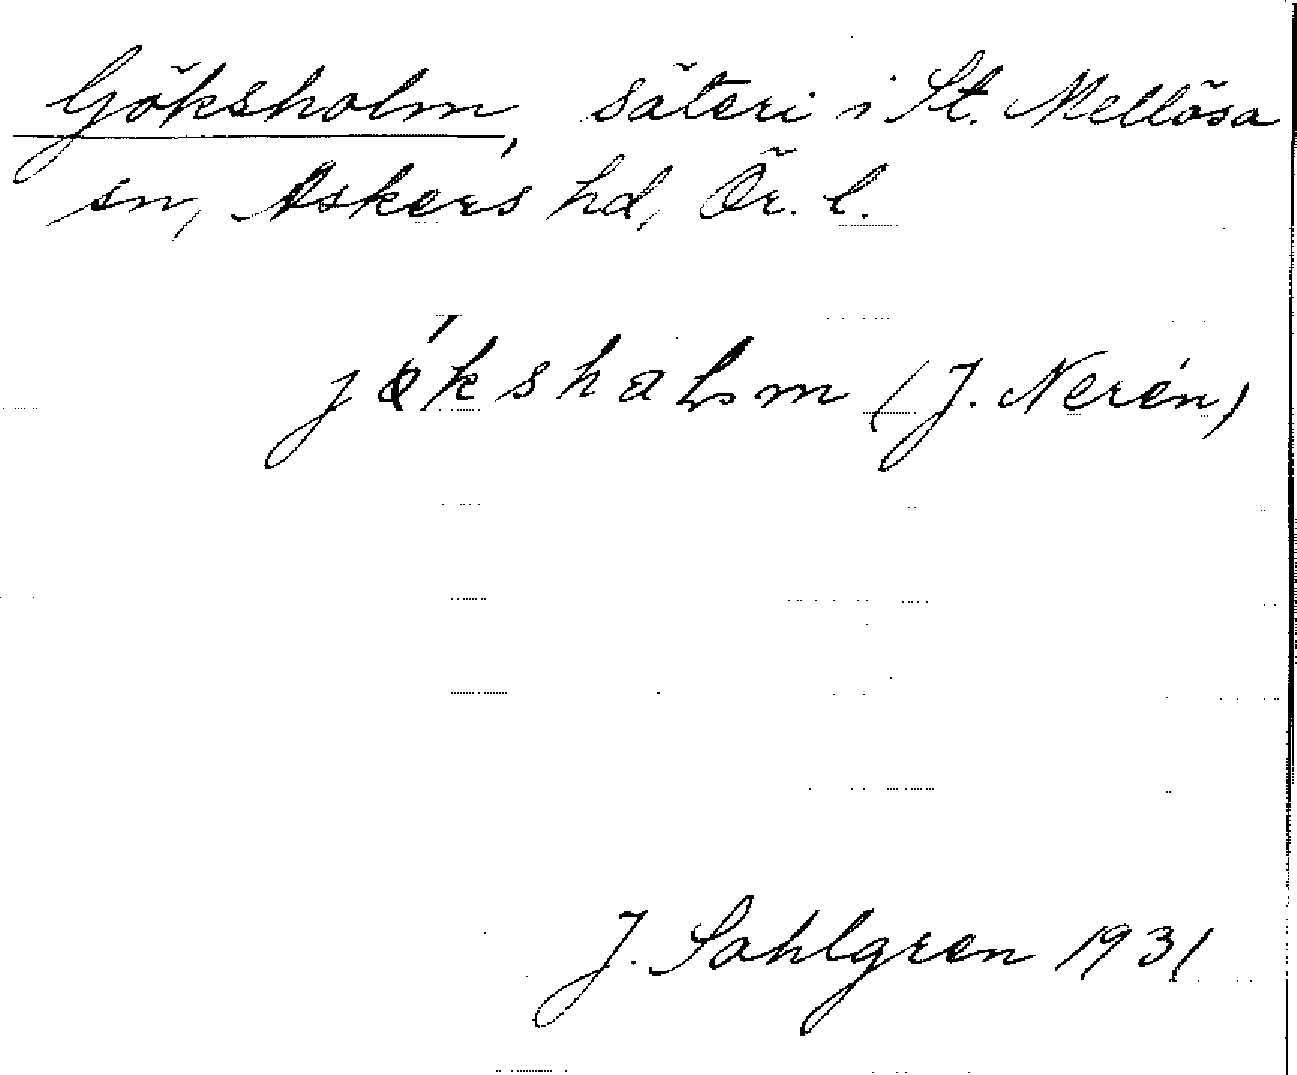 Göksholm, säteri i St. Mellösa
sn, Askers hd, Ör. l.
jǿkshaɬm (J. Nerén)
J. Sahlgren 1931